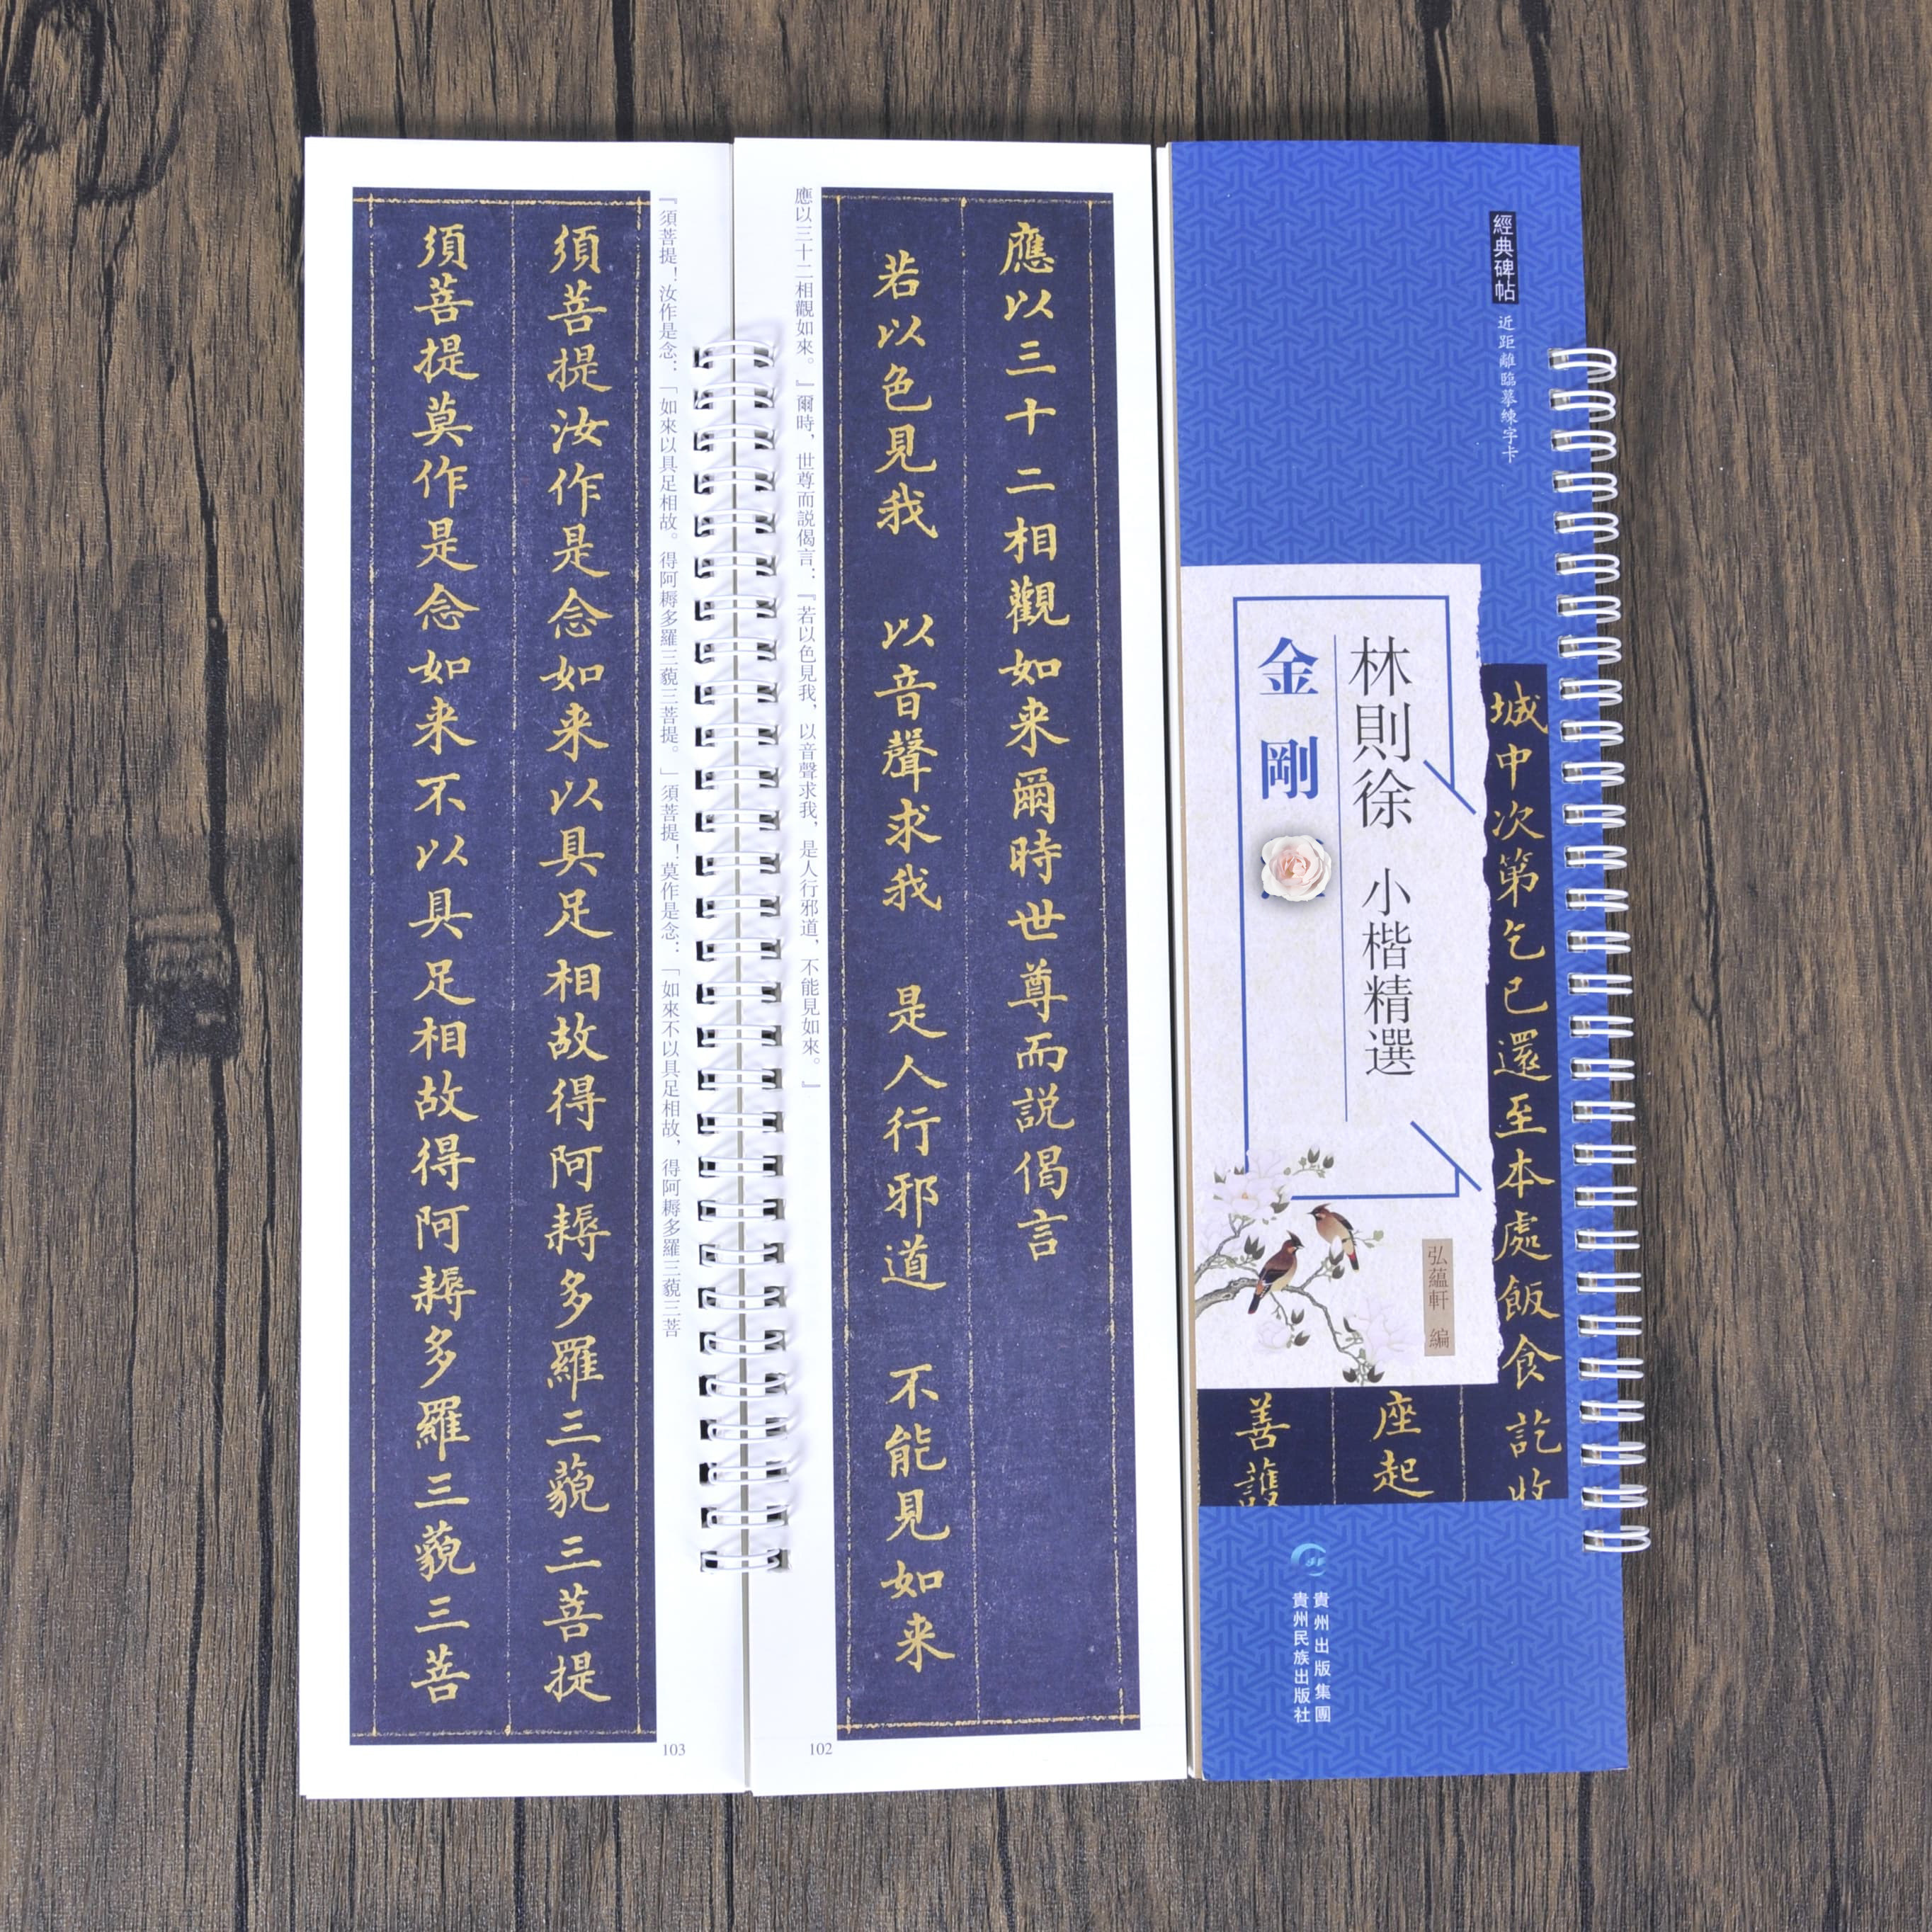 經典碑帖
近距離臨摹練字卡
林則徐 小楷精選
金剛
弘蘊軒 編
城中次第乞已還至本處飯食訖收
座起
善護
貴州出版集團
貴州民族出版社
應以三十二相觀如来爾時世尊而説偈言
若以色見我 以音聲求我 是人行邪道 不能見如来
應以三十二相觀如來。』爾時，世尊而説偈言：『若以色見我，以音聲求我，是人行邪道，不能見如來。』
102
『須菩提！汝作是念：「如來以具足相故。得阿耨多羅三藐三菩提。」須菩提！莫作是念：「如來不以具足相故，得阿耨多羅三藐三菩
須菩提汝作是念如来以具足相故得阿耨多羅三藐三菩提
須菩提莫作是念如来不以具足相故得阿耨多羅三藐三菩
103